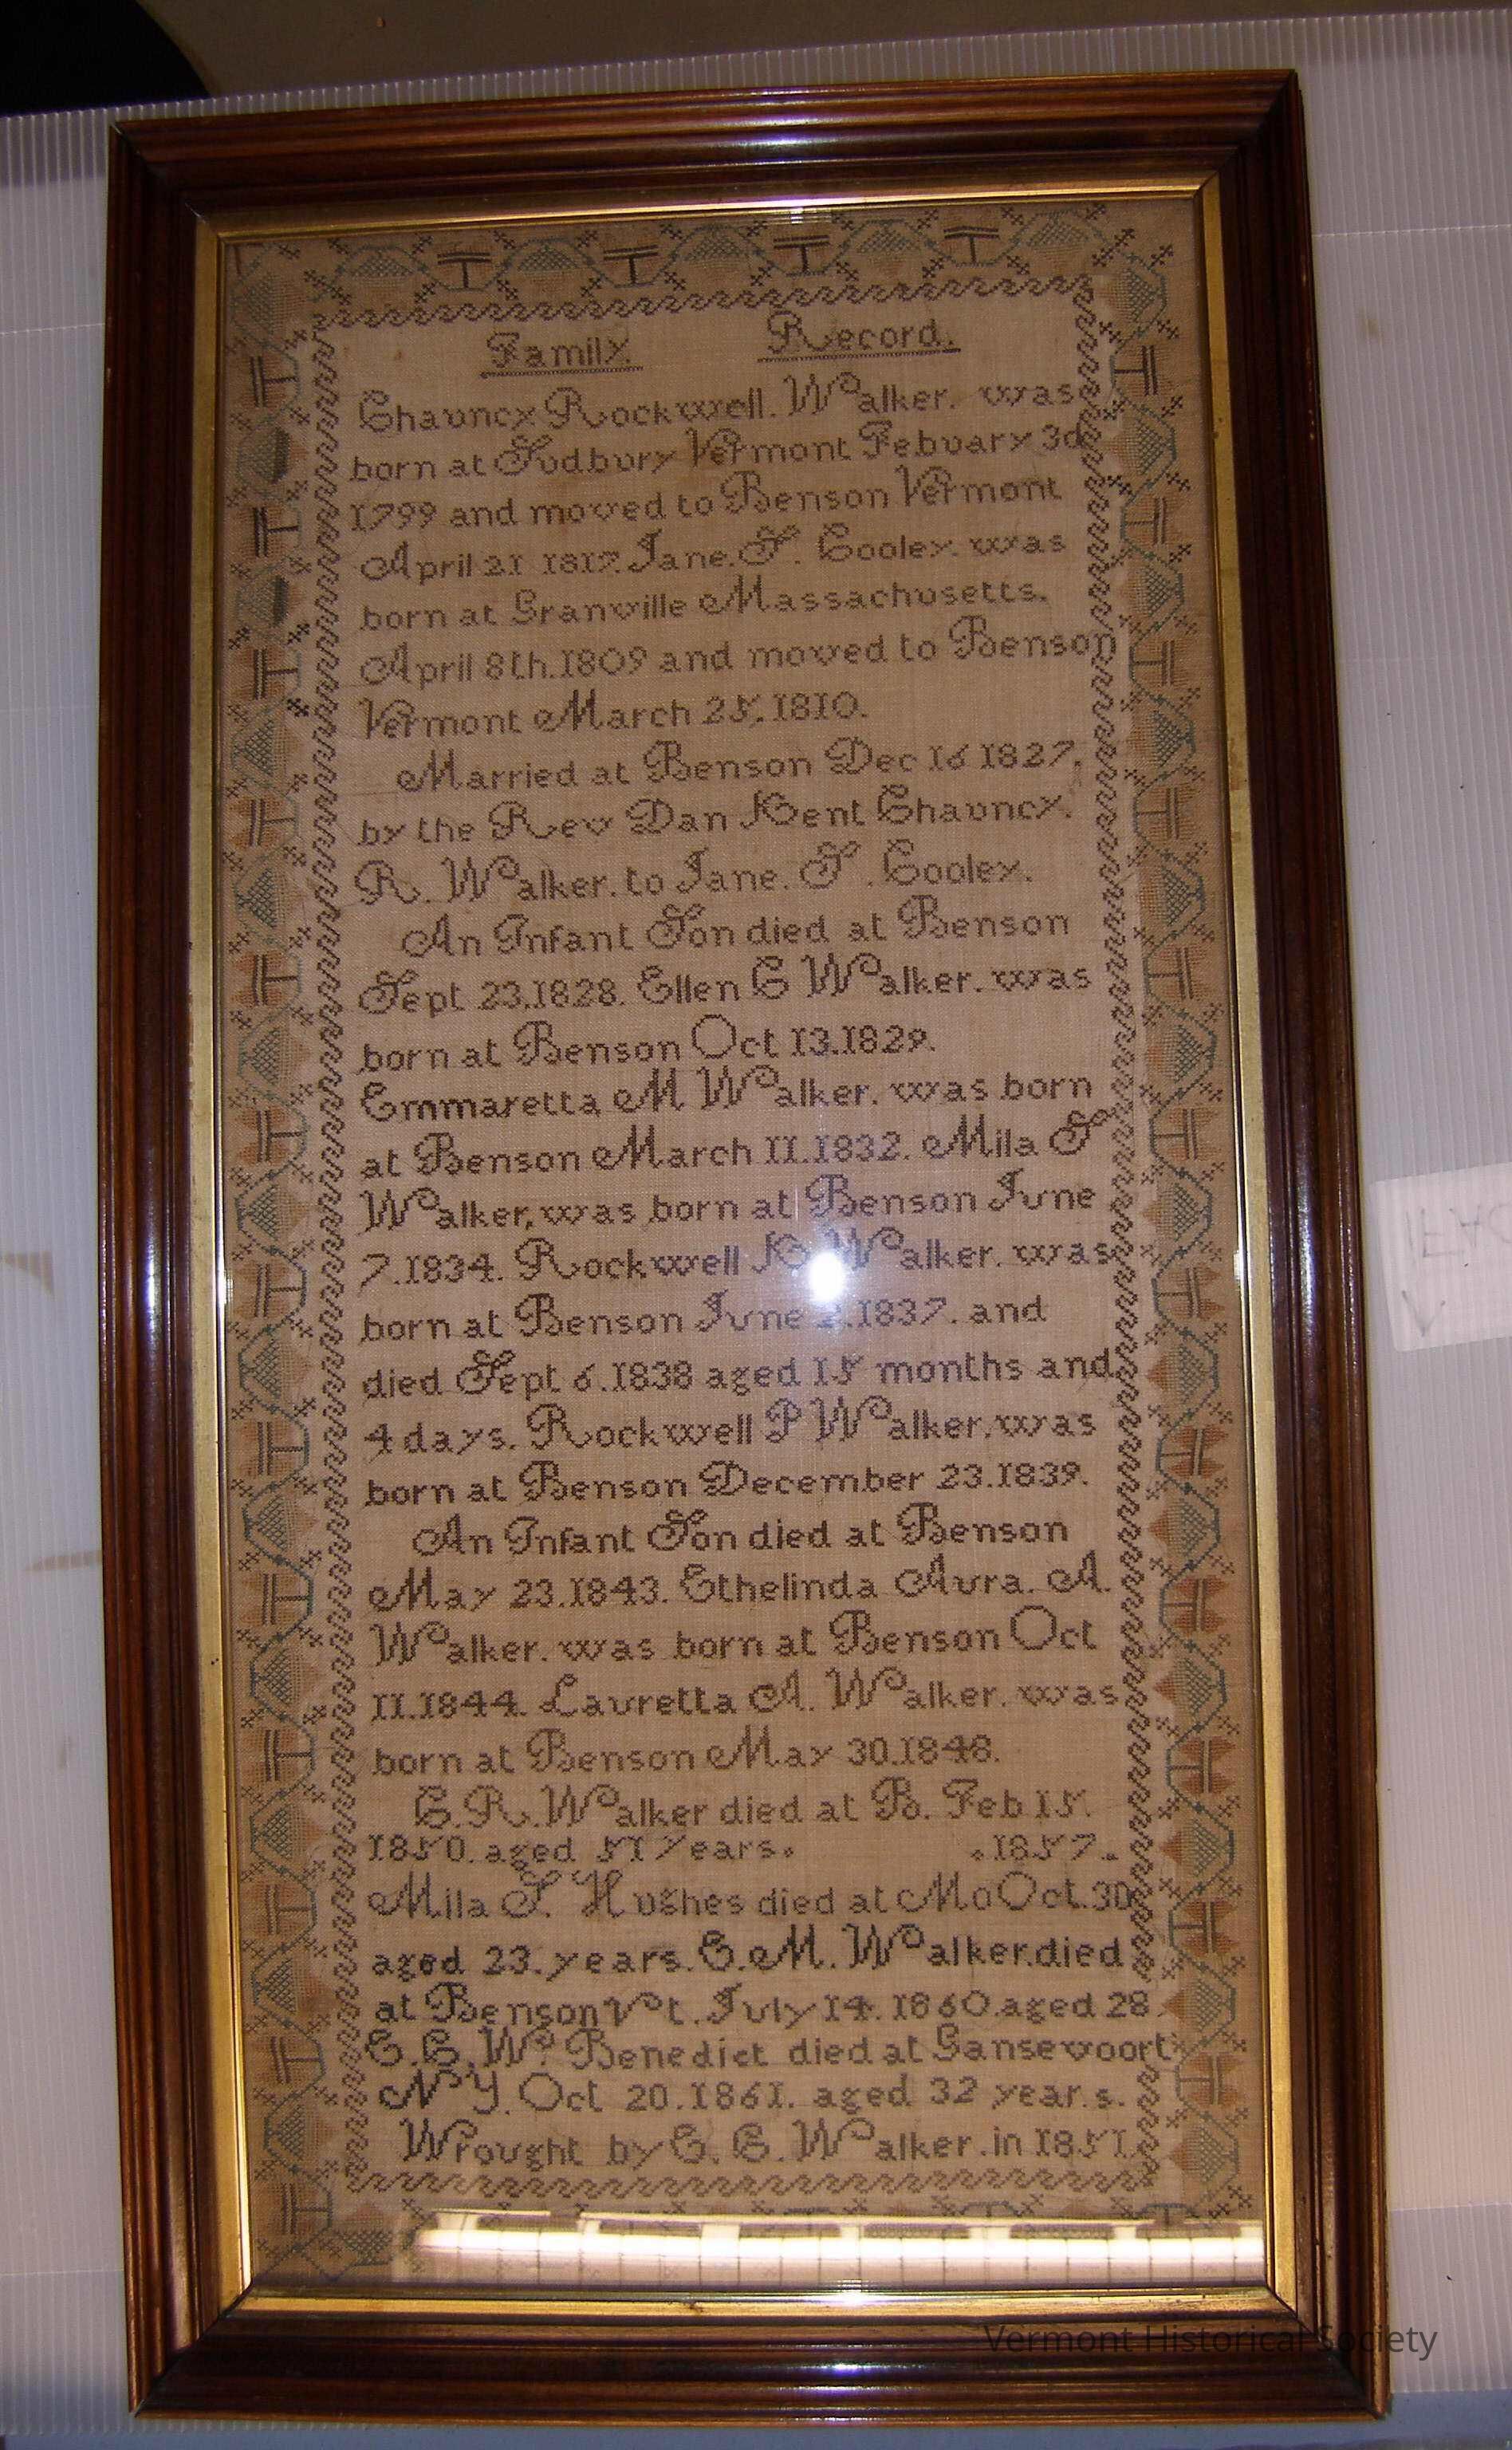 Family. Record.
Chauncy Rockwell. Walker. was
born at Sudbury Vermont Febuary 3d
1799 and moved to Benson Vermont
April 21 1817. Jane. S. Cooley. was
born at Granville Massachusetts.
April 8th.1809 and moved to Benson
Vermont March 25.1810.
Married at Benson Dec 16 1827.
by the Rev Dan Kent Chauncy.
R. Walker. to Jane. S. Cooley.
An Infant Son died at Benson
Sept 23.1828. Ellen C Walker. was
born at Benson Oct 13.1829.
Emmaretta M Walker. was born
at Benson March 11.1832. Mila S
Walker, was born at Benson June
7.1834. Rockwell K Walker. was
born at Benson June .1837. and
died Sept 6.1838 aged 15 months and
4 days. Rockwell P Walker. was
born at Benson December 23.1839.
An Infant Son died at Benson
May 23.1843. Ethelinda Aura. A.
Walker. was born at Benson Oct
11.1844. Lauretta A. Walker. was
born at Benson May 30.1848.
C.R. Walker died at B. Feb 15.
1850. aged 51 Years. .1857.
Mila S. Hughes died at Mo Oct.30
aged 23. years. E.M. Walker.died
at Benson Vt. July 14.1860.aged 28
E.C.W. Benedict died at Gansevoort
N Y. Oct 20.1861. aged 32 years.
Wrought by E. C. Walker. in 1851.
Vermont Historical Society